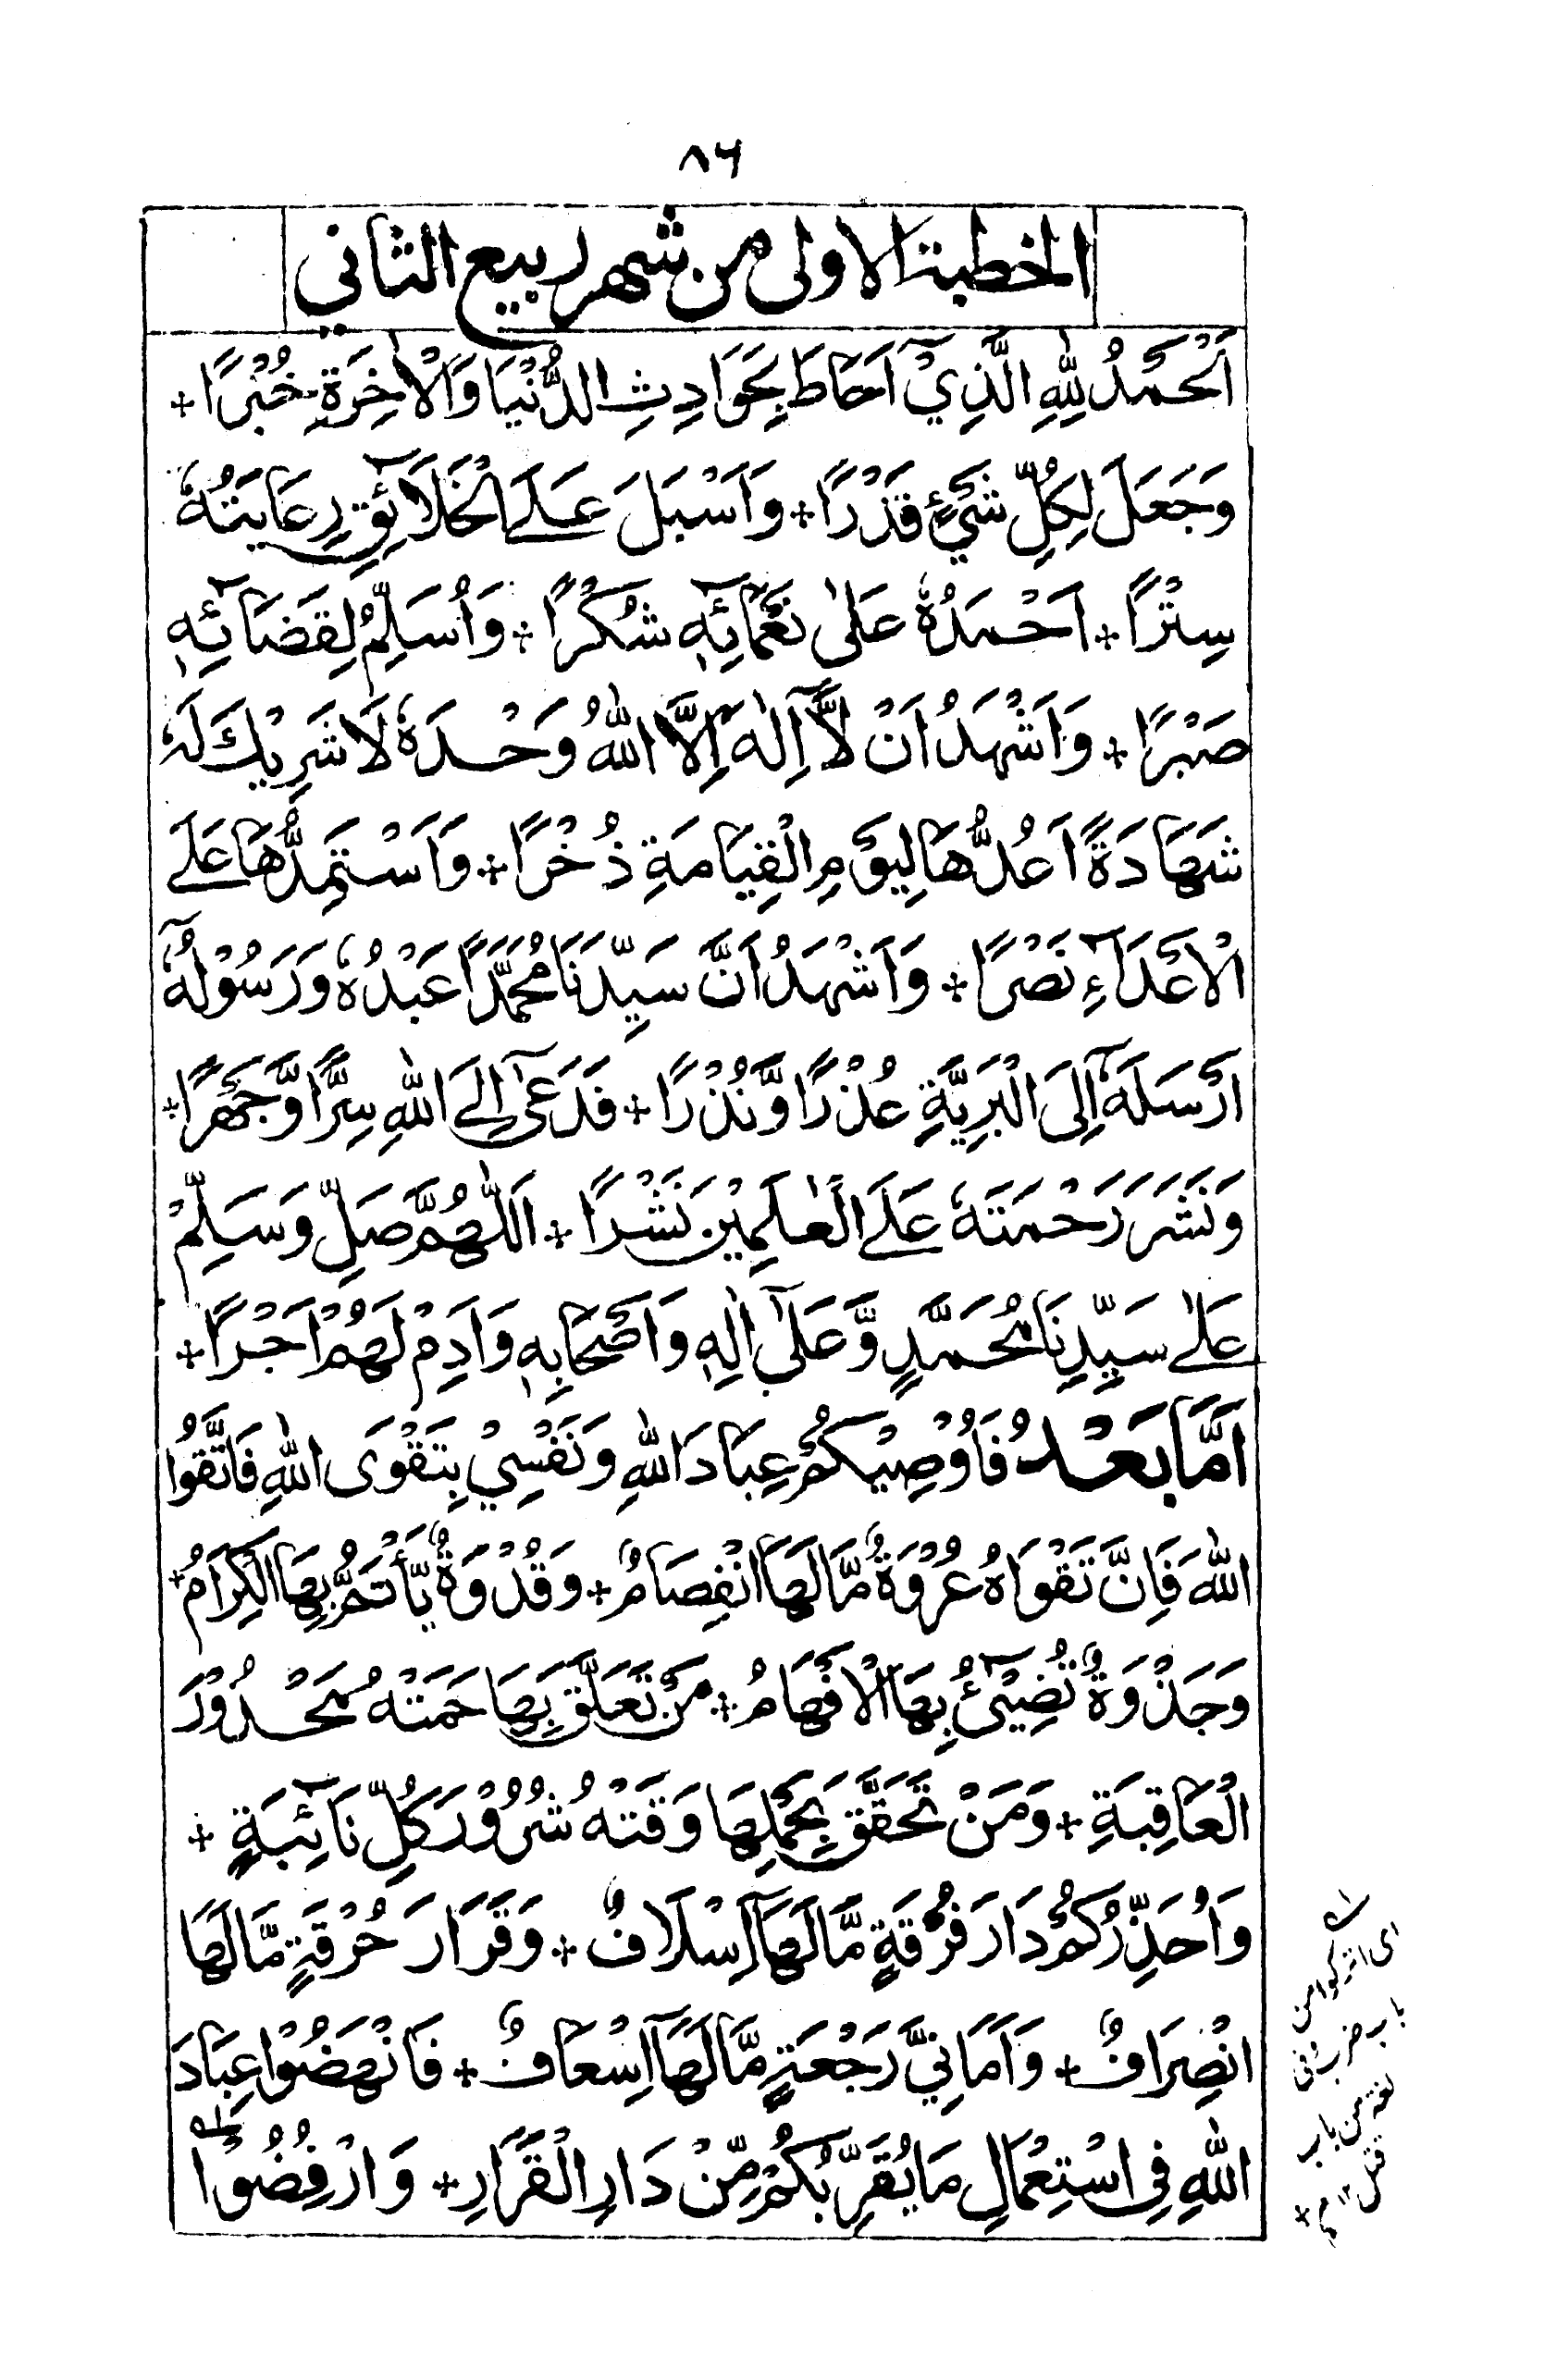 ۸۶
الخطبة الاولى من شهر ربيع الثاني
اَلْحَمْدُ لِلّٰهِ الَّذِيْٓ اَحَاطَ بِحَوَادِثِ الدُّنْيَا وَالْاٰخِرَةِ خُبْرًا +
وَجَعَلَ لِكُلِّ شَيْءٍ قَدْرًا + وَاَسْبَلَ عَلَے الْخَلَآئِقِ رِعَايَتُهٗ
سِتْرًا + اَحْمَدُهٗ عَلٰى نَعْمَآئِهٖ شُكْرًا + وَاُسَلِّمُ لِقَضَآئِهٖ
صَبْرًا + وَاَشْهَدُ اَنْ لَّآ اِلٰهَ اِلَّا اللّٰهُ وَحْدَهٗ لَا شَرِيْكَ لَهٗ
شَهَادَةً اَعُدُّهَا لِيَوْمِ الْقِيَامَةِ ذُخْرًا + وَاَسْتَمِدُّهَا عَلَے
الْاَعْدَآءِ نَصْرًا + وَاَشْهَدُ اَنَّ سَيِّدَنَا مُحَمَّدًا عَبْدُهٗ وَرَسُوْلُهٗٓ
اَرْسَلَهٗٓ اِلَى الْبَرِيَّةِ عُذْرًا وَّنُذْرًا + فَدَعٰٓى اِلَے اللّٰهِ سِرًّا وَّجَهْرًا +
وَنَشَرَ رَحْمَتَهٗ عَلَے الْعٰلَمِيْنَ نَشْرًا + اَللّٰهُمَّ صَلِّ وَسَلِّمْ
عَلٰے سَيِّدِنَا مُحَمَّدٍ وَّعَلٰٓى اٰلِهٖ وَاَصْحَابِهٖ وَاَدِمْ لَهُمْ اَجْرًا +
اَمَّا بَعْدُ فَاُوْصِيْكُمْ عِبَادَ اللّٰهِ وَنَفْسِيْ بِتَقْوَى اللّٰهِ فَاتَّقُوا
اللّٰهَ فَاِنَّ تَقْوَاهُ عُرْوَةٌ مَّا لَهَا انْفِصَامٌ + وَقُدْوَةٌ يَّأْتَمُّ بِهَا الْكِرَامُ +
وَجَذْوَةٌ تُضِيْٓئُ بِهَا الْاَفْهَامُ + مَنْ تَعَلَّقَ بِهَا حَمَتْهُ مَحْذُوْرَ
الْعَاقِبَةِ + وَمَنْ تَحَقَّقَ بِحَمْلِهَا وَقَتْهُ شُرُوْرَ كُلِّ نَآئِبَةٍ +
وَاُحَذِّرُكُمْ دَارَ فُرْقَةٍ مَّا لَهَآ اِسْلَافٌ + وَقَرَارَ حُرْقَةٍ مَّا لَهَا
انْصِرَافٌ + وَاَمَانِيَّ رَجْعَةٍ مَّا لَهَآ اِسْعَافٌ + فَانْهَضُوْا عِبَادَ
اللّٰهِ فِى اسْتِعْمَالِ مَا يُقَرِّبُكُمْ مِّنْ دَارِ الْقَرَارِ + وَارْفِضُوْا
اى اتركوا من
باب ضرب وفى
لغة من باب
قتل ١٢ م